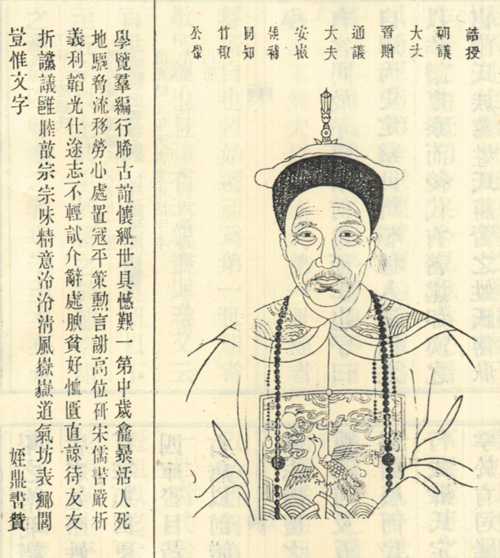 誥授
朝議
大夫
晉贈
通議
大夫
安徽
候補
同知
竹
公像
學覽羣編行睎古誼懷經世具憾艱一第中歲龕暴活人死
地驅脅流移勞心處置冠平策勳言謝高位研宋儒書嚴析
義利韜光仕途志不輕試介辭處腴貧好恤匱直諒待友友
折讜議雝睦敬宗宗味精意泠泠清風嶽嶽道氣坊表鄉閭
豈惟文字
姪鼎書贊